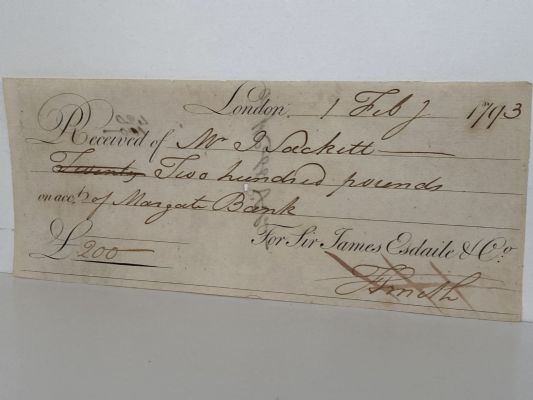 London, 1 Feby 1793
Received of Mr J Sackett
Twenty Two hundred pounds
on acct. of Margate Bank
£ 200
For Sir James Esdaile & Co.
JSmith